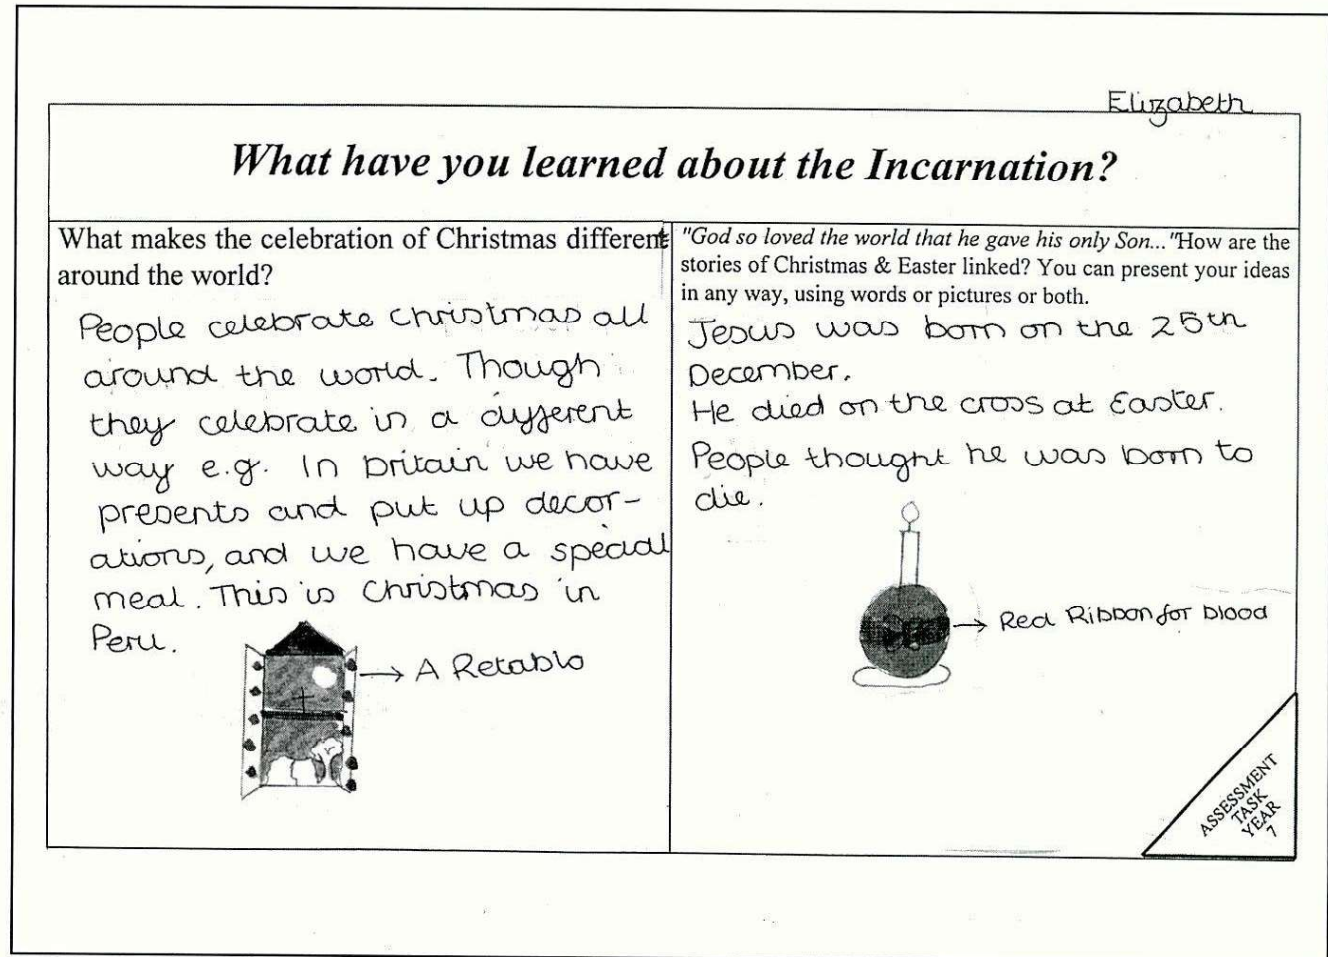 Elizabeth
What have you learned about the Incarnation?
What makes the celebration of Christmas different
around the world?
People celebrate christmas all
around the world. Though
they celebrate in a different
way e.g. In britain we have
presents and put up decor-
ations, and we have a special
meal. This is Christmas in
Peru.
A Retablo
"God so loved the world that he gave his only Son..."How are the
stories of Christmas & Easter linked? You can present your ideas
in any way, using words or pictures or both.
Jesus was born on the 25th
December.
He died on the cross at Easter.
People thought he was born to
die.
Red Ribbon for blood
ASSESSMENT
TASK
YEAR
7